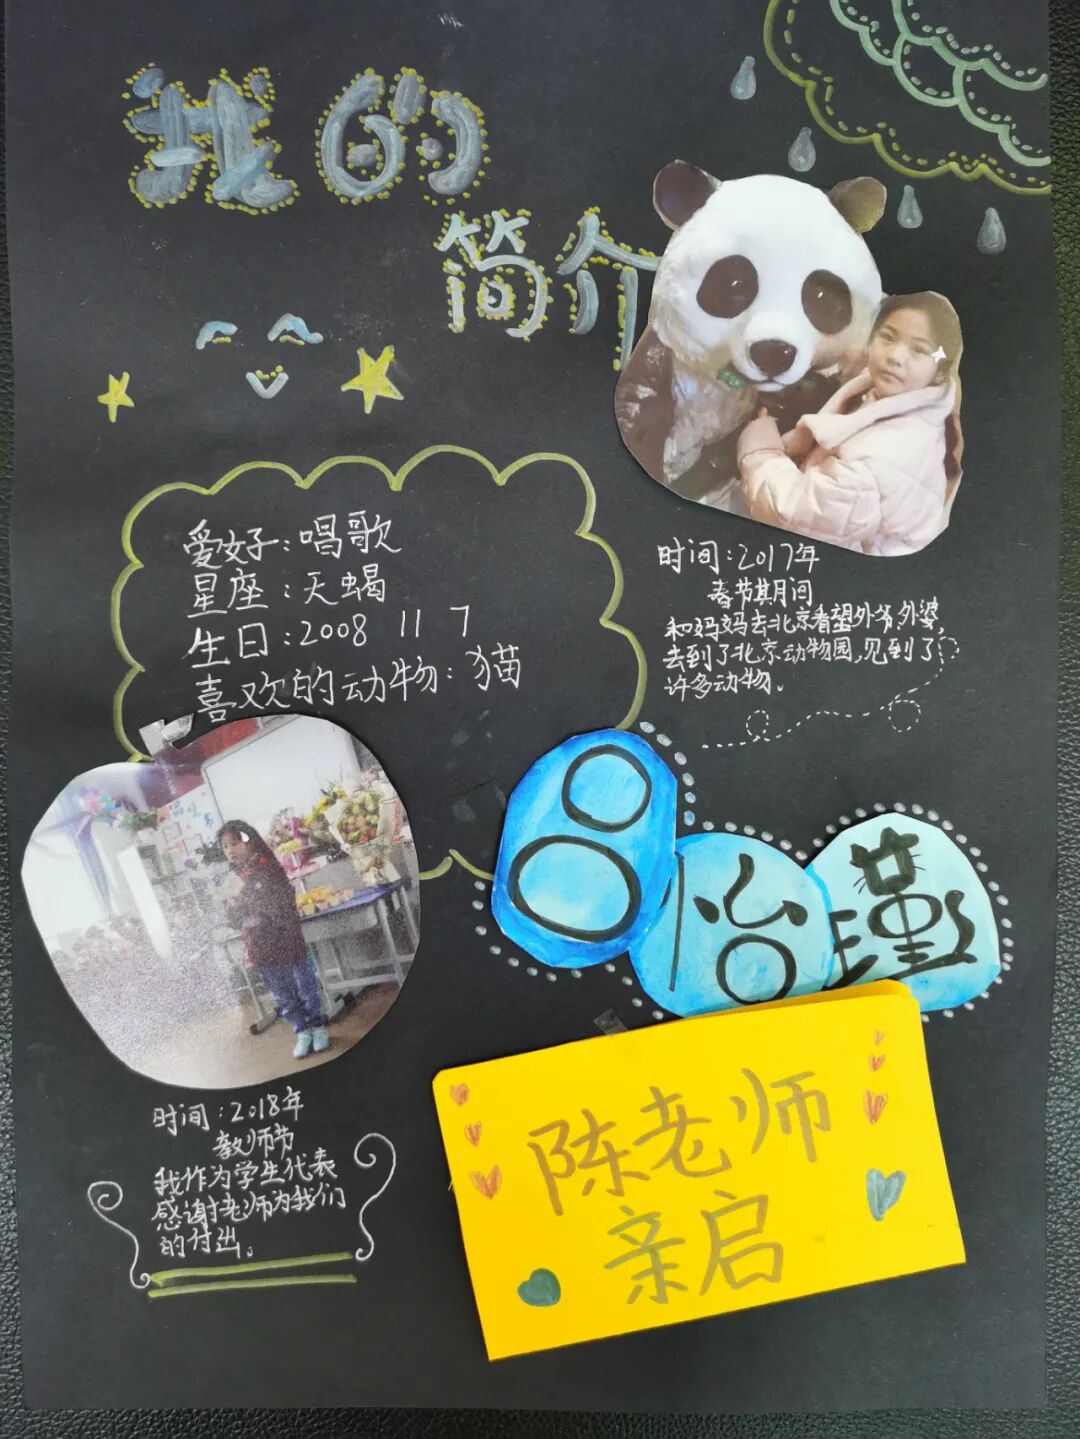 我的
简介
爱好：唱歌
星座：天蝎
生日：2008 11 7
喜欢的动物：猫
时间：2017年
春节期间
和妈妈去北京看望外爷,外婆,
去到了北京动物园,见到了
许多动物。
吕怡瑾
时间：2018年
教师节
我作为学生代表
感谢老师为我们
的付出。
陈老师
亲启